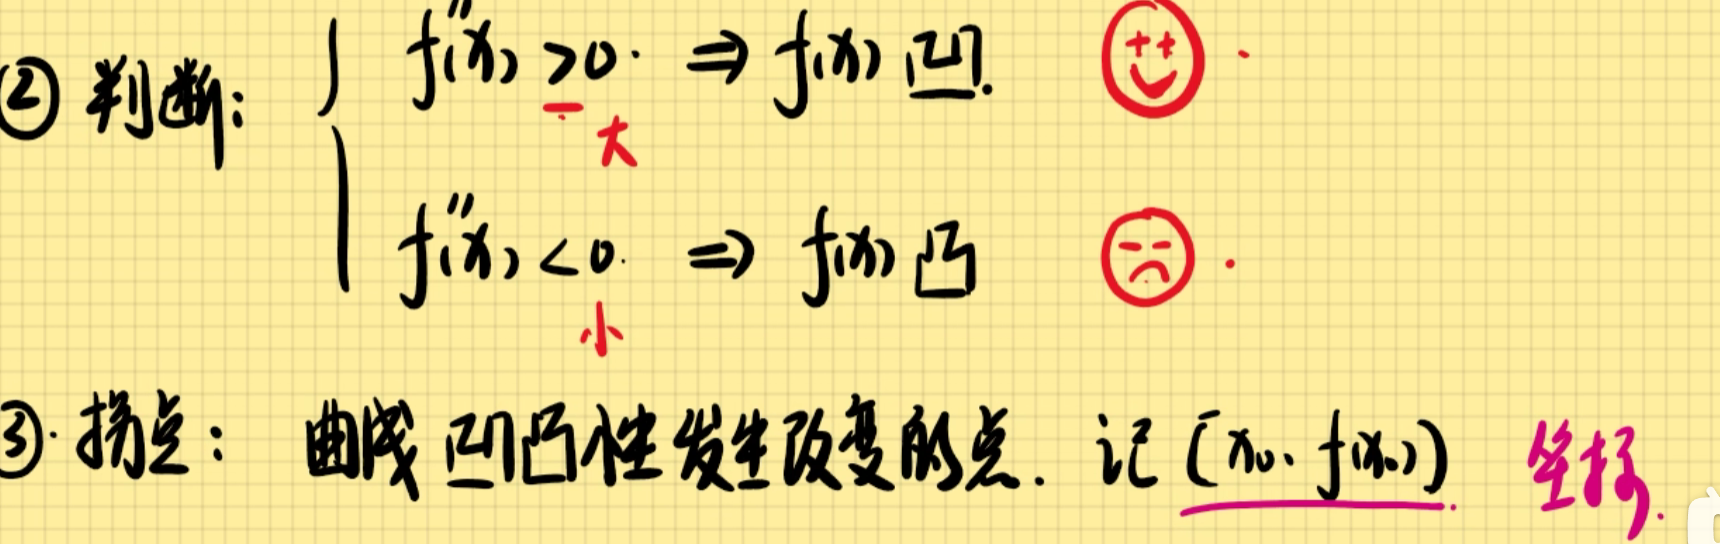 ② 判断: { f''(x) >0. ⇒ f(x) 凹.
大
f''(x) <0. ⇒ f(x) 凸
小
③. 拐点: 曲线凹凸性发生改变的点. 记 (x₀, f(x₀)) 坐标.